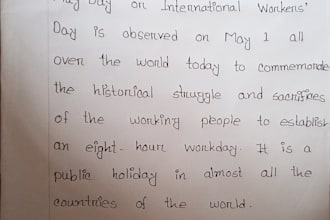 May Day or International Workers'
Day is observed on May 1 all
over the world today to commemorate
the historical struggle and sacrifices
of the working people to establish
an eight-hour workday. It is a
public holiday in almost all the
countries of the world.